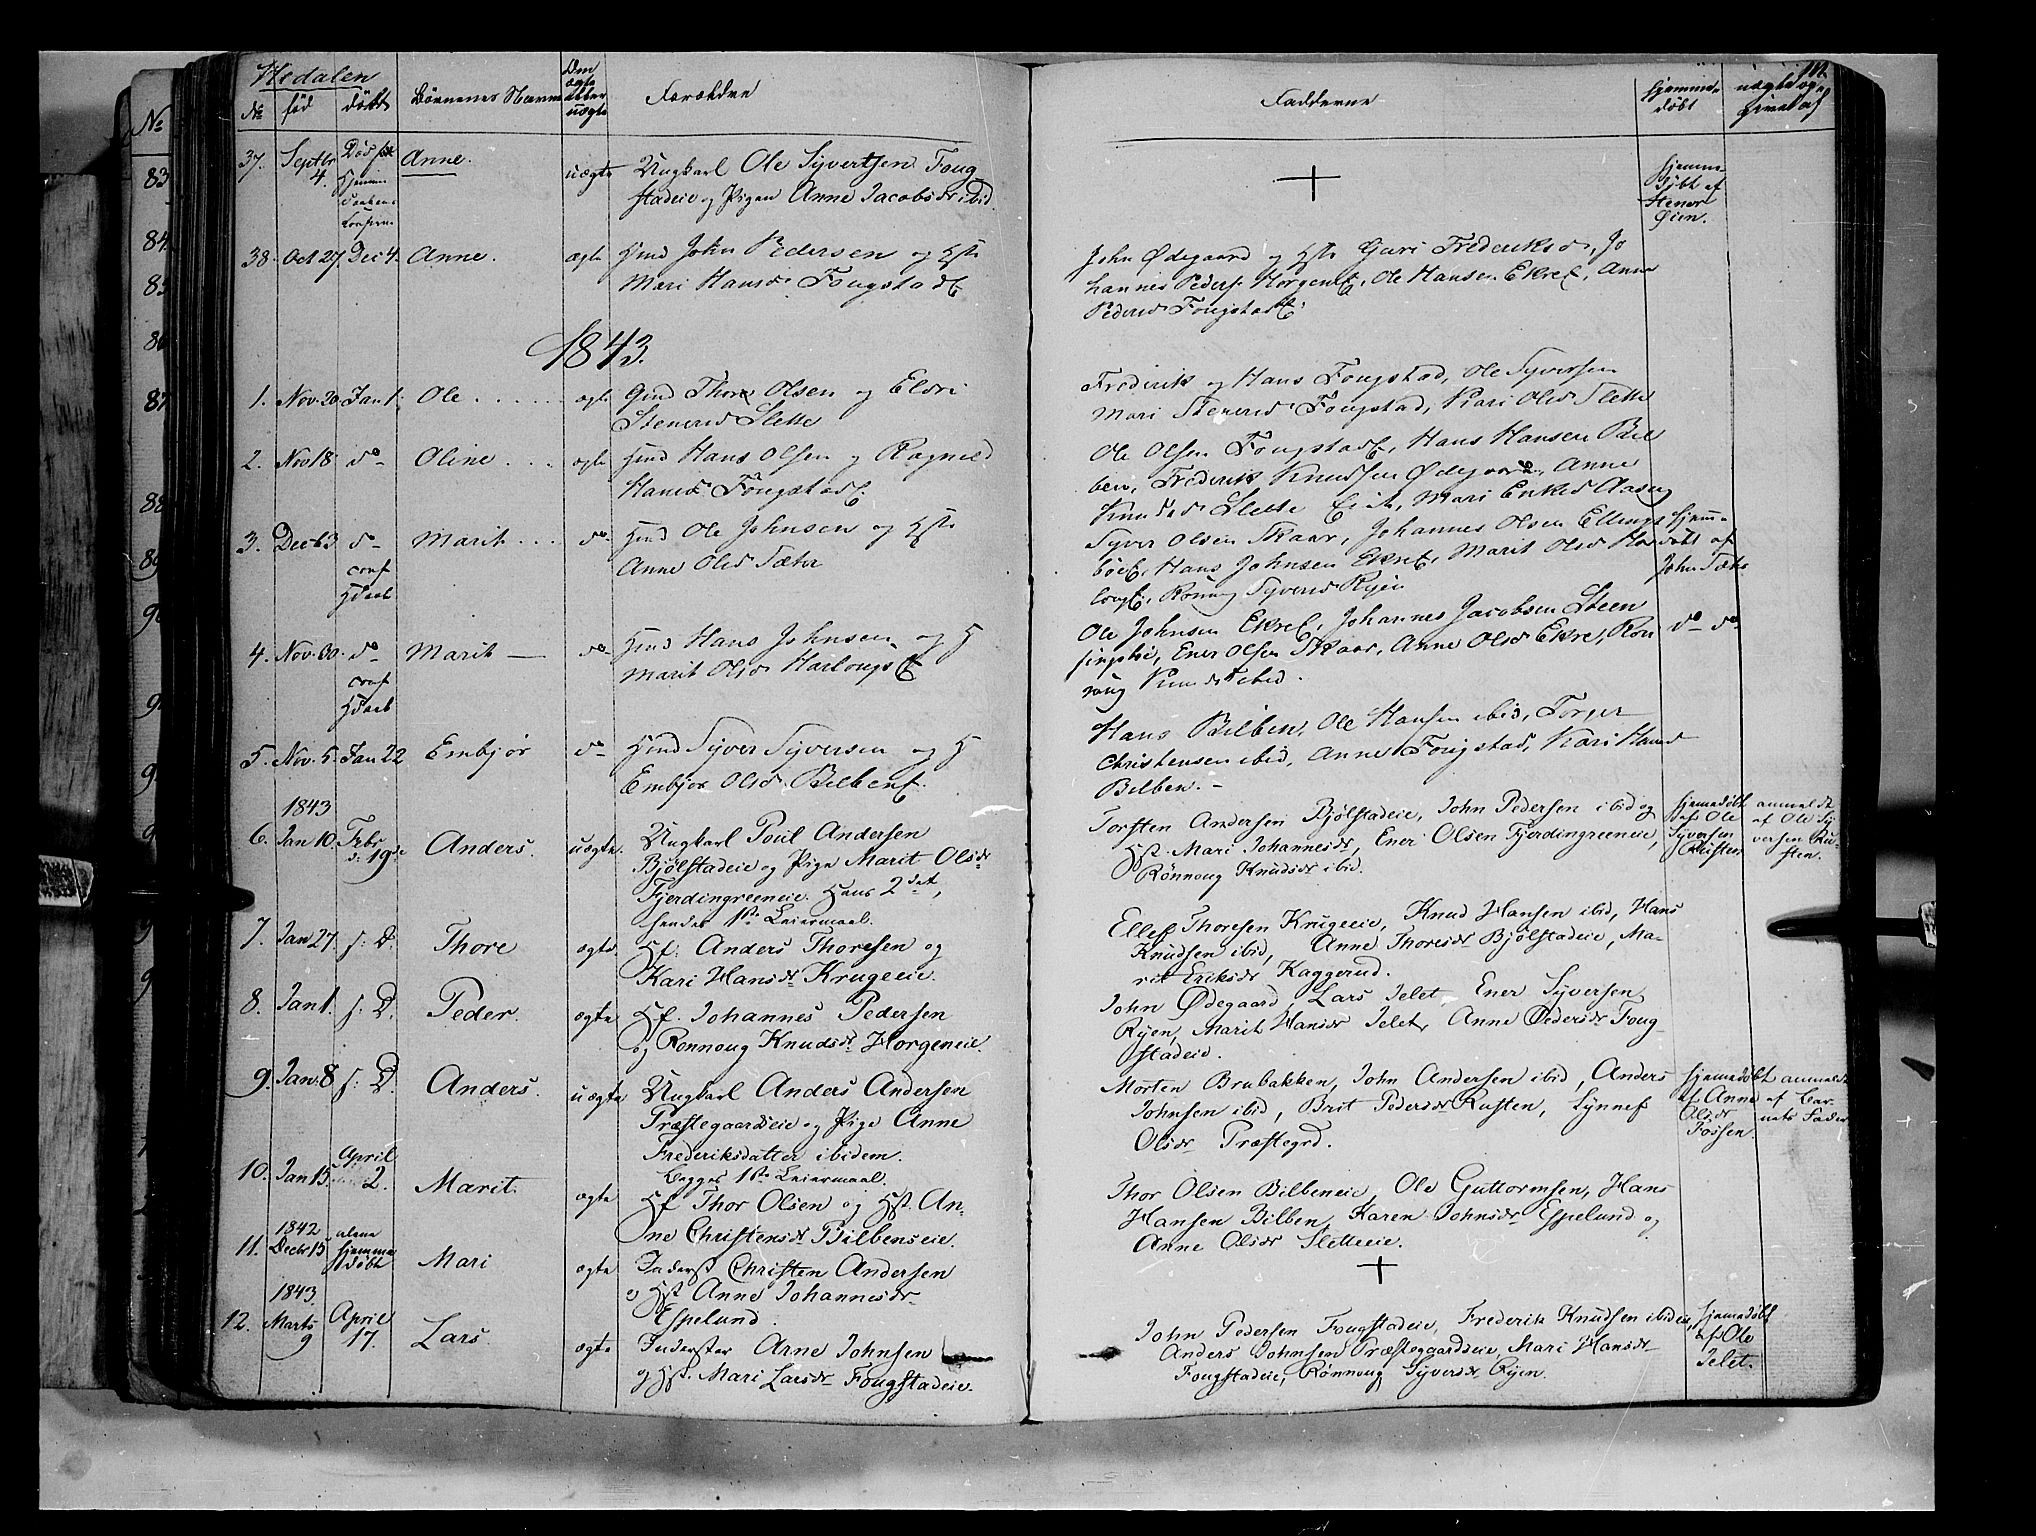 Hedalen
No. fød døbt Børnenes Navne Om ægte eller uægte Forældre Fadderne hjemmedøbt
37. Septbr 4. Anne. uægte Ungkarl Ole Syvertsen Foug
stadeie og Pigen Anne Jacobsdr ibid.
+
hjemme
døbt af
Øien.
38. Oct 27. Dec 4. Anne. ægte John Pedersen og Hst
Mari Hansdr Fougstad
John Ødegaard og Hst Guri Frederiksdr, Jo
hannes Peders. Horgen, Ole Hansen Ekre, Anne
Pedersd Fougstad
1843.
1. Nov. 20 Jan 1. Ole . . . . . ægte Thore Olsen og Eldri
Stenersd Slette
Frederik og Hans Fougstad, Ole Syversen
Mari Stenersd Fougstad, Kari Olsd Slette
2. Nov 18 do Oline . . . ægte Hans Olsen og Ragnild
Hansd Fougstad
Ole Olsen Fougstad, Hans Hansen Bil
ben, Frederik Knudsen Ødegaard, Anne
Knudsd Slette, Mari Eriksd Aasen
3. Decb 3 do Marit . . . do Ole Johnsen og Hst
conf Anne Olsd Sæter
Syver Olsen Skaar, Johannes Olsen Ellings
bøe, Hans Johnsen Ekre, Marit Olsd Har
loug, Rønnug Syversd Ryen
hjemme
døbt af
John Sæter
4. Nov. 30. do Marit — do Hans Johnsen og H
conf Marit Olsd Harlougs
Ole Johnsen Ekre, Johannes Jacobsen Steen
Ener Olsen Skaar, Anne Olsd Ekre, Røn
nug Knudsd ibid.
do do
5. Nov. 5. Jan 22 Embjør do Syver Syversen og H
Embjør Olsd Bilben
Hans Bilben, Ole Hansen ibid, Torger
Christensen ibid, Anne Fougstad, Kari Hansd
Bilben. -
1843
6. Jan 10. Febr 19de Anders. uægte. Ungkarl Poul Andersen
Bjølstadeie og Pige Marit Olsdr
Fjerdingreeneie. Hans 2det,
hendes 1ste Leiermaal.
Torsten Andersen Bjølstadeie, John Pedersen ibid og
Hst. Mari Johannesdr, Ener Olsen Fjerdingreeneie,
Rønnoug Knudsdr ibid.
hjemedøbt
af Ole
Syversen
Rusten
anmeldt
af Ole Sy
versen Ru-
sten.
7. Jan 27. s: D. Thore ægte Hf. Anders Thoresen og
Kari Hansdr Krugeeie.
Ellef Thoresen Krugeeie, Knud Hansen ibid, Hans
Knudsen ibid, Anne Thoresdr Bjølstadeie, Ma-
rit Eriksdr Kaggerud.
8. Jan 1. s: D. Peder. ægte Hf. Johannes Pedersen
og Rønnoug Knudsdr Horgeneie.
John Ødegaard, Lars Jelet, Ener Syversen
Ryen, Marit Hansdr Jelet, Anne Pedersdr Foug-
stadeie.
9. Jan. 8. s: D. Anders. uægte Ungkarl Anders Andersen
Præstegaardseie og Pige Anne
Frederiksdatter ibidem.
Begges 1ste Leiermaal.
Morten Brubakken, John Andersen ibid, Anders
Johnsen ibid, Brit Pedersdr Rusten, Synnef
Olsdr Præstegrd.
hjemedøbt
af Anne
Olsdr
Fossen.
anmeldt
af Bar-
nets Fader
10. Jan 15. April 2. Marit ægte Hf Thor Olsen og Hst. An-
ne Christensdr Bilbenseie.
Thor Olsen Bilbeneie, Ole Guttormsen, Hans
Hansen Bilben, Karen Johnsdr Espelund og
Anne Olsdr Sletteeie.
1842
11. Decbr 15 alene
hjemme
døbt Mari ægte Inderst Christen Andersen
og Hst Anne Johannesdr
Espelund.
+
1843.
12. Marts 9 April 17. Lars. ægte Inderster Arne Johnsen
og Hst. Mari Larsdr Fougstadeie.
John Pedersen Fougstadeie, Frederik Knudsen ibidem,
Anders Johnsen Præstegaardseie, Mari Hansdr
Fougstadeie, Rønnoug Syversdr Ryen.
hjemedøbt
af Ole
Jelet.
No
83
84
85
86
87
88